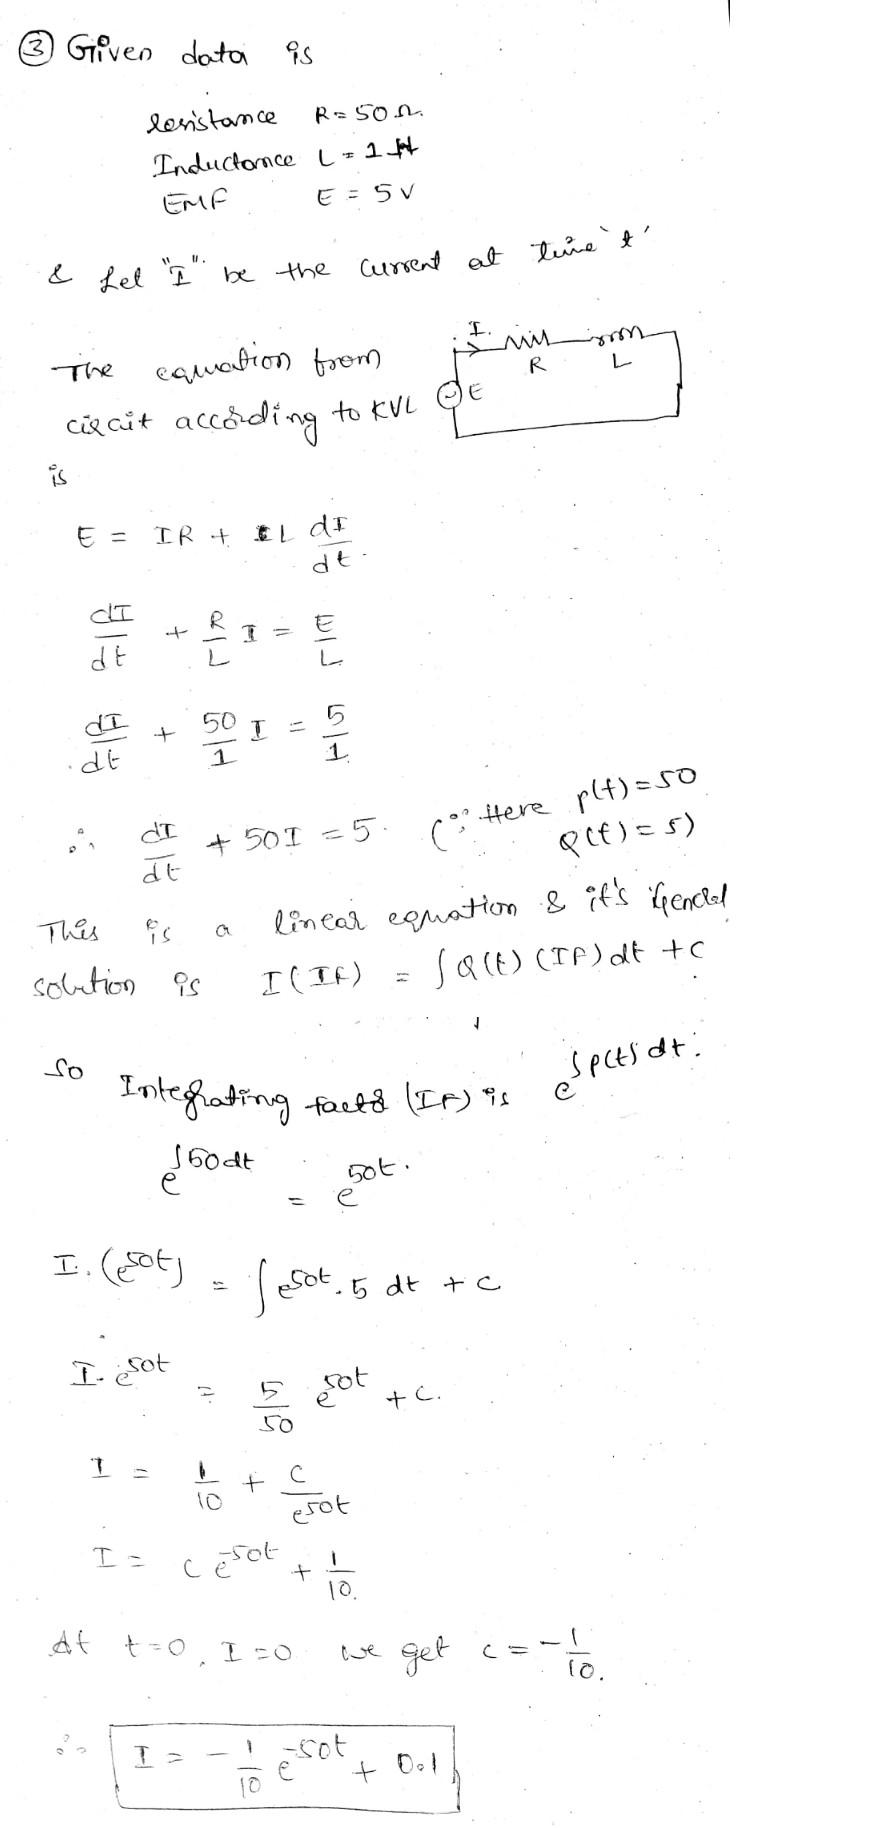 ③ Given data is
Resistance R = 50 Ω.
Inductance L = 1 H
EMF E = 5 V
& Let "I" be the current at time 't'
The equation from
circuit according to KVL
is
I.
R L
E
E = IR + L dI/dt.
dI/dt + R/L I = E/L
dI/dt + 50/1 I = 5/1.
∴ dI/dt + 50I = 5. (∵ Here p(t) = 50
Q(t) = 5)
This is a linear equation & it's General
solution is I(IF) = ∫Q(t) (IF) dt + C
So Integrating factor (IF) is e^∫p(t) dt.
e^∫50dt = e^50t.
I. (e^50t) = ∫e^50t. 5 dt + c
I. e^50t = 5/50 e^50t + c.
I = 1/10 + c/e^50t
I = c e^-50t + 1/10.
At t=0, I=0 we get c = -1/10.
∴ I = -1/10 e^-50t + 0.1